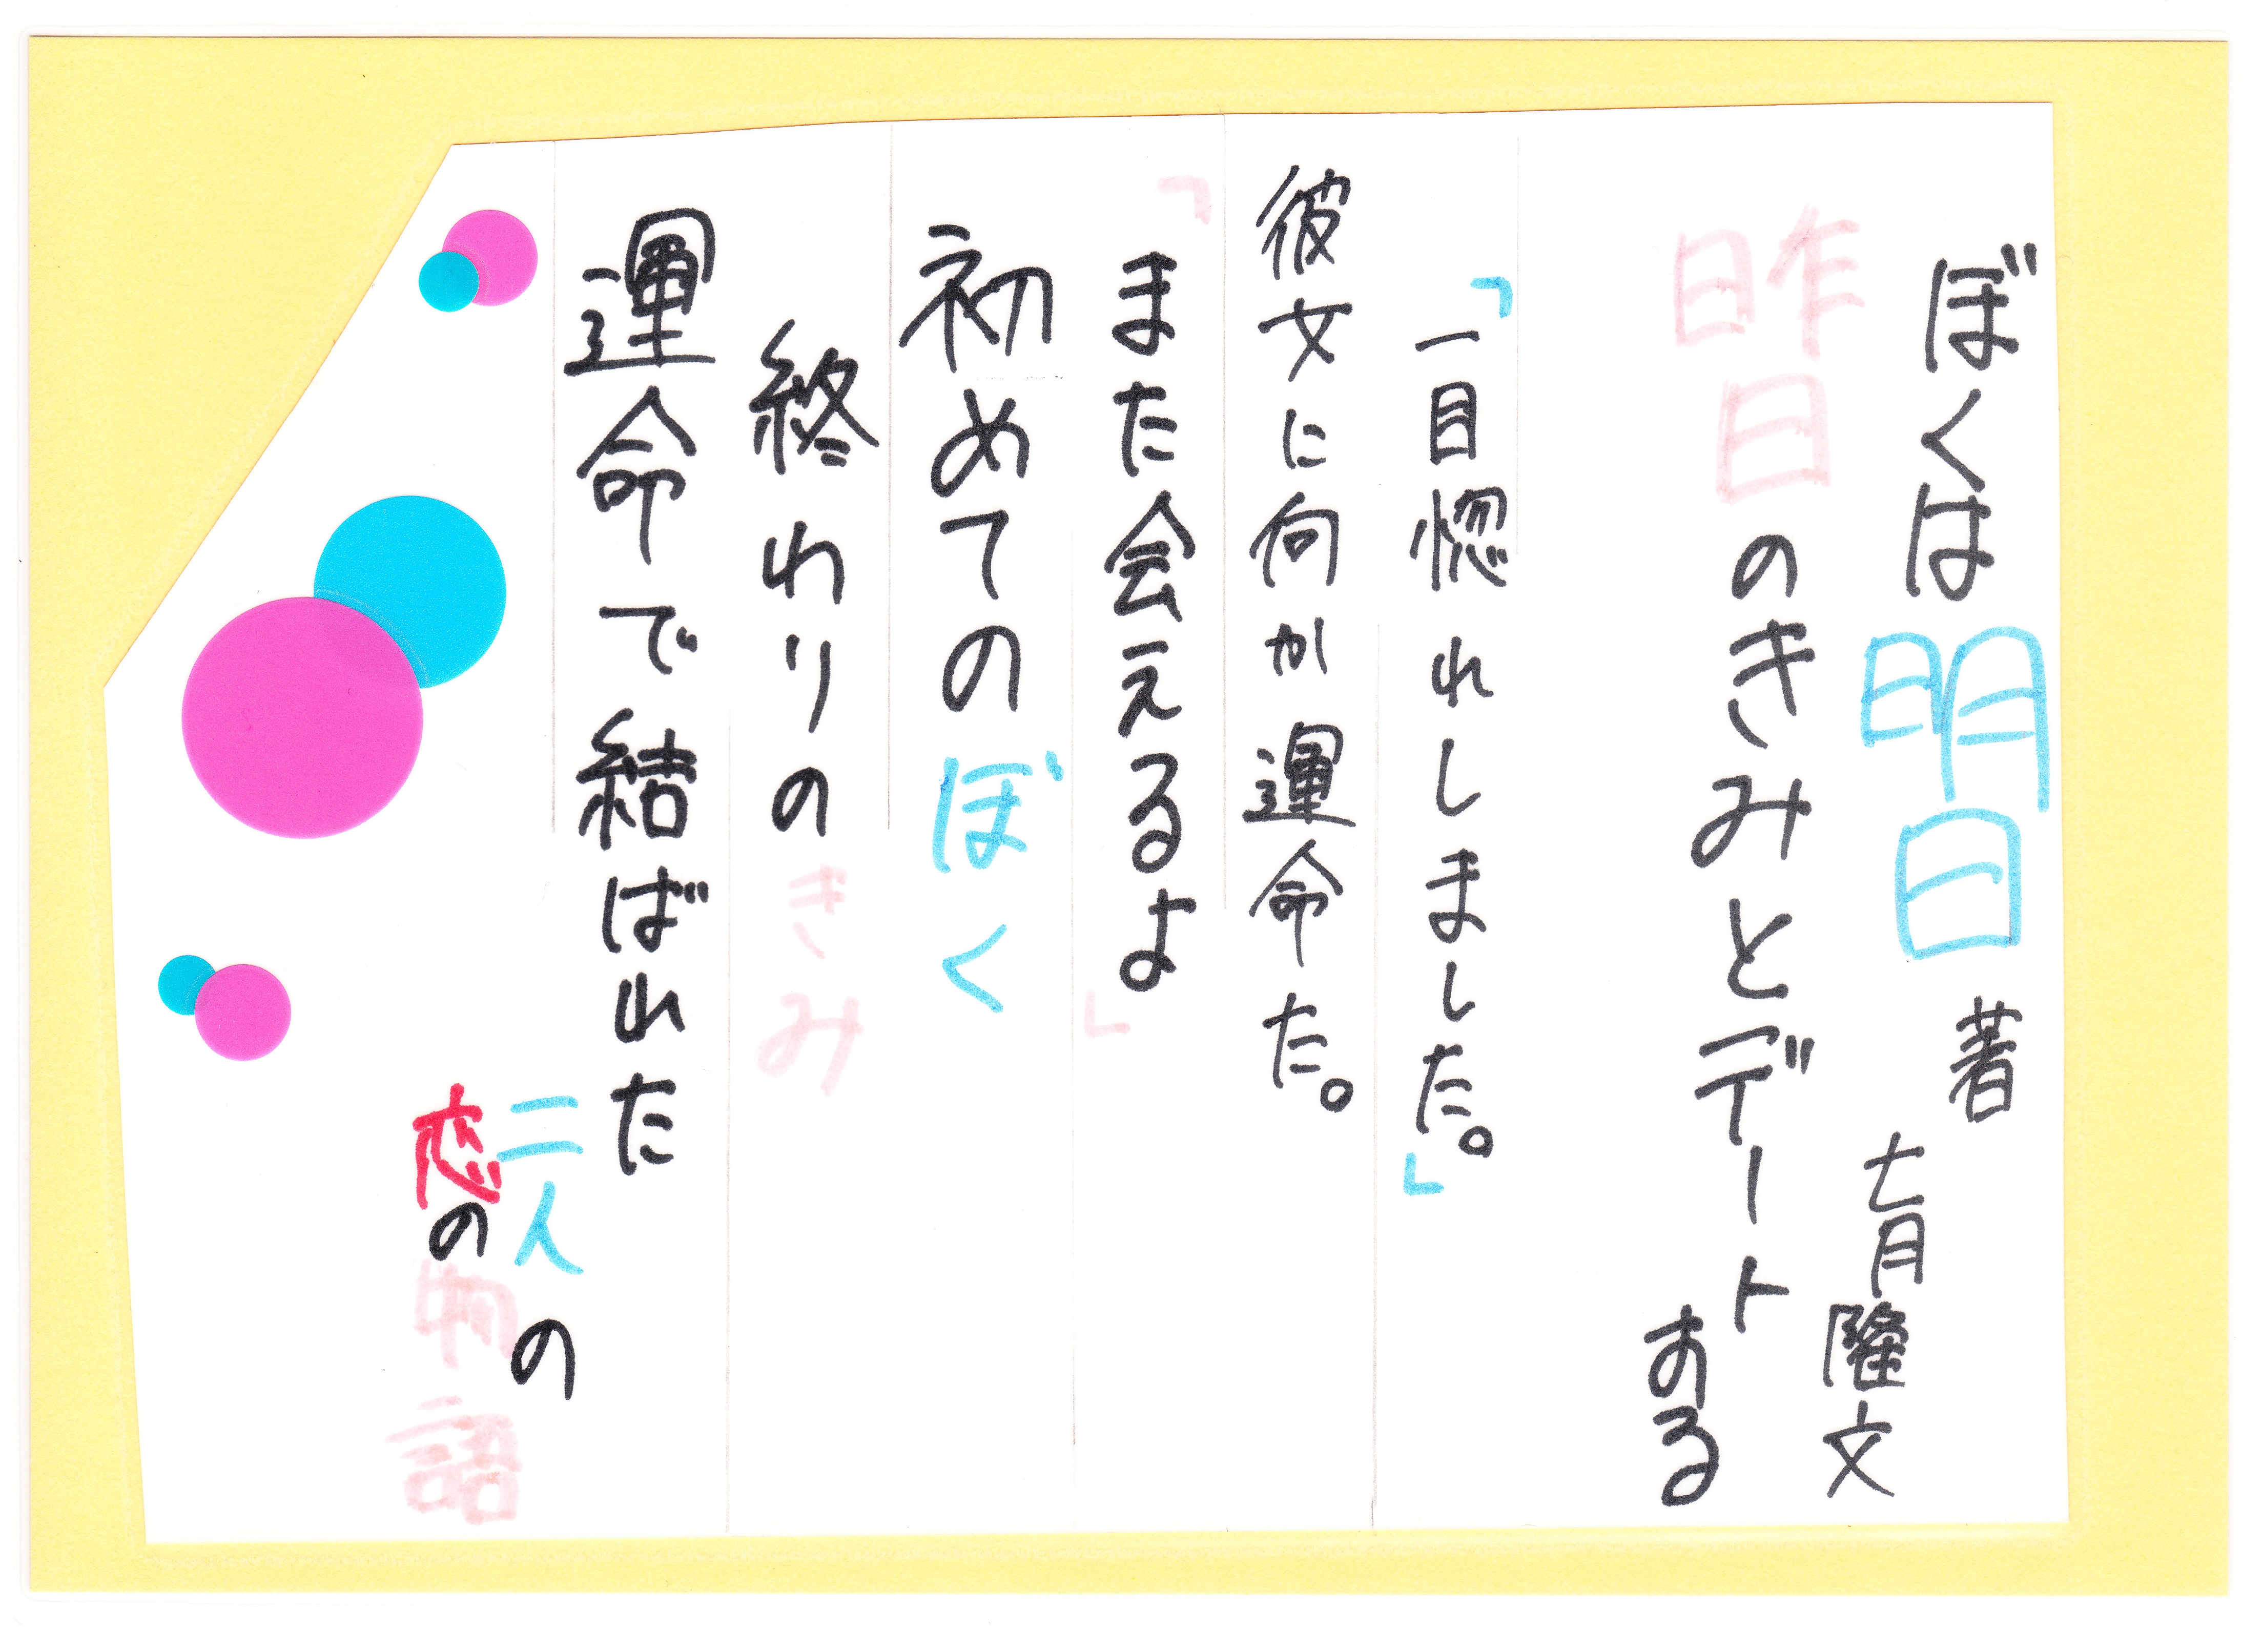 ぼくは明日
昨日のきみとデートする
著 七月隆文
「一目惚れしました。」
彼女に何か運命た。
「また会えるよ」
初めてのぼく
終わりのきみ
運命で結ばれた
二人の
恋の物語